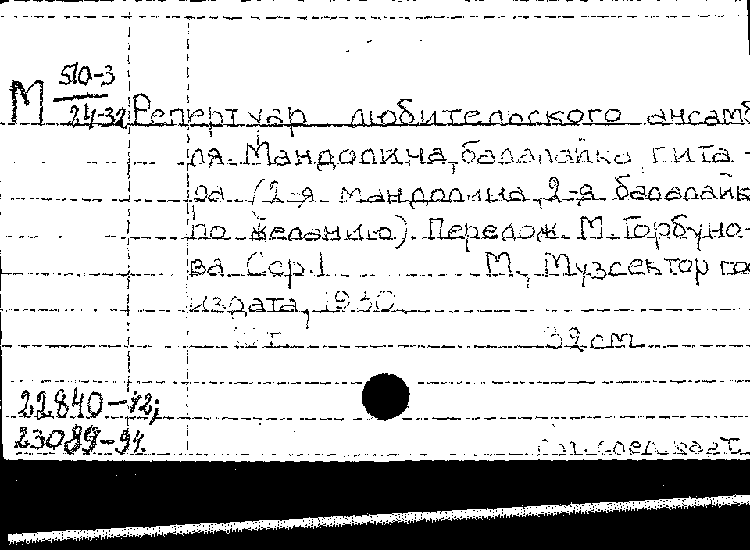 М 510-3
24-32 Репертуар любительского ансамб
ля. Мандолина, балалайка, гита-
ра (2-я мандолина, 2-я балалайк
по желанию). Перелож. М. Горбуно-
ва Сер. I М., Музсектор гос
издата, 1930.
32 см
22840-42;
23089-94.
См. след. карт.